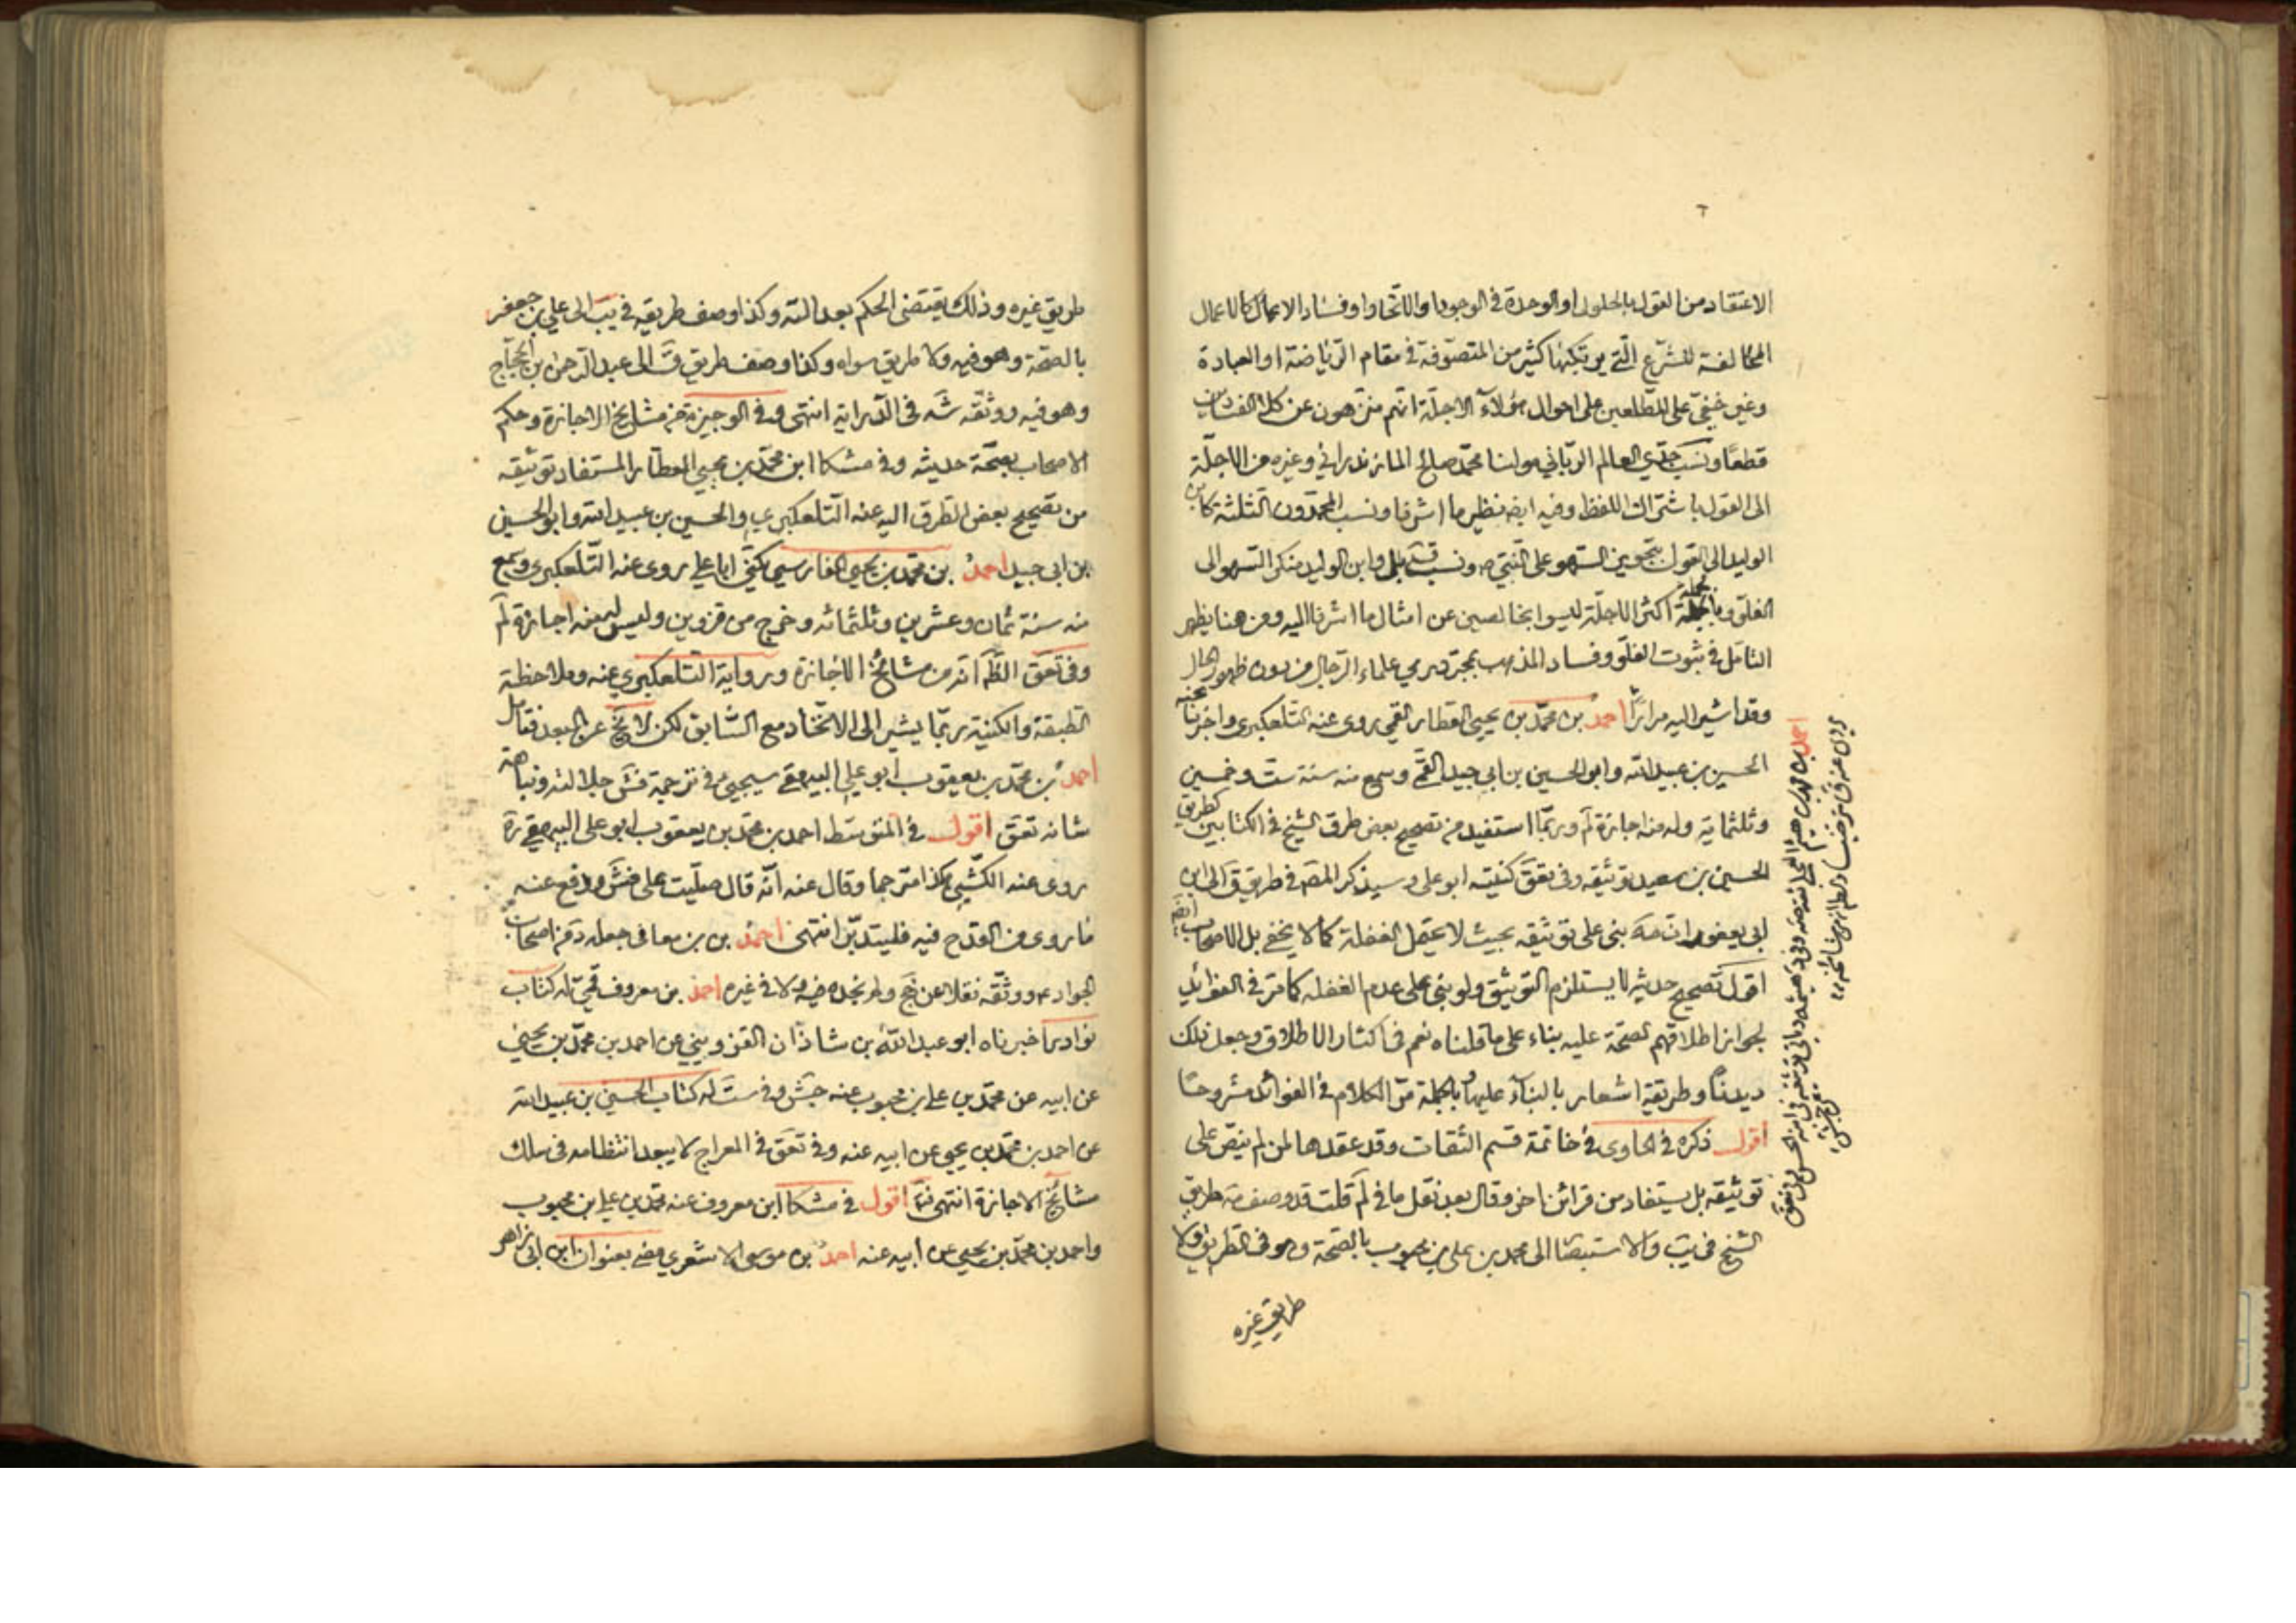 الاعتقاد من القول بالحلول او الوحدة في الوجود او الاتحاد او فساد الاعمال كالاعمال
المخالفة للشرع التي يرتكبها كثير من المتصوفة في مقام الرياضة او العبادة
وغير خفي على المطلعين على احوال هؤلاء الاجلة انهم منزهون عن كلا الفسادين
قطعا ونسب جدي العالم الرباني مولنا محمد صالح المازندراني وغيره من الاجلة
الى القول باشتراك اللفظ وفيه ايضا نظير ما اشرنا ونسب المحمدون الثلثة كابن
الوليد الى القول بتجويز السهو على النبي ص ونسب بل وابن الوليد منكر السهو الى
الغلو وبالجملة اكثر الاجلة ليسوا بخالصين عن امثال ما اشرنا اليه ومن هنا يظهر
التامل في ثبوت الغلو وفساد المذهب بمجرد رمي علماء الرجال من دون ظهور الحال
وقد اشير اليه مرارا احمد بن محمد بن يحيى العطار القمي روى عنه التلعكبري واخبرنا عنه
الحسين بن عبيد الله وابو الحسين بن ابي جيد القمي وسمع منه سنة ست وخمسين
وثلثماية وله منه اجازة لم وربما استفيد من تصحيح بعض طرق الشيخ في الكتابين كطريق
الحسين بن سعيد توثيقه وفي تعق كنيته ابو علي وسيذكر المص في طريق ق الى ابن
ابي يعفور ان مه بنى على توثيقه بحيث لا يحتمل الغفلة كما لا يخفى بل الاصحاب ايضا
اقول تصحيح حديثه لا يستلزم التوثيق ولو بني على عدم الغفله كما مر في الفوائد
لجواز اطلاقهم الصحة عليه بناء على ما قلناه نعم في اكثار الاطلاق وجعل ذلك
ديدنا وطريقة اشعار بالبناء عليها وبالجملة مر الكلام في الفوائد مشروحا
اقول ذكره في الحاوي في خاتمة قسم الثقات وقد عقدها لمن لم ينص على
توثيقه بل يستفاد من قرائن اخر وقال بعد نقل ما في لم قلت قد وصف مه طريق
الشيخ في يب والاستبصا الى محمد بن علي بن محبوب بالصحة وهو في الطريق ولا
طريق غيره
احمد بن محمد بن هيثم العجلي
طريق غيره وذلك يقتضي الحكم بعدالته وكذا وصف طريقه في يب الى علي بن جعفر
بالصحة وهو فيه ولا طريق سواه وكذا وصف طريق ق الى عبد الرحمن بن الحجاج
وهو فيه ووثقه شه في الدراية انتهى وفي الوجيزة من مشايخ الاجازة وحكم
الاصحاب بصحة حديثه وفي مشكا ابن محمد بن يحيى العطار المستفاد توثيقه
من تصحيح بعض الطرق اليه عنه التلعكبري والحسين بن عبيد الله وابو الحسين
بن ابي جيد احمد بن محمد بن يحيى الفارسي يكنى ابا علي روى عنه التلعكبري وسمع
منه سنة ثمان وعشرين وثلثمائه وخرج من قزوين وليس له منه اجازة لم
وفي تعق الظ انه من مشائخ الاجازة ورواية التلعكبري عنه وملاحظة
الطبقة والكنية ربما يشير الى الاتحاد مع السابق لكن لا يخ عن البعد فتامل
احمد بن محمد بن يعقوب ابو علي البيهقي سيجيى في ترجمة فش جلالته ونباهة
شانه تعق اقول في المتوسط احمد بن محمد بن يعقوب ابو علي البيهقي ره
روى عنه الكشي هكذا مترحما وقال عنه انه قال صليت على فش ودفع عنه
ما روى من القدح فيه فليتدبر انتهى احمد بن بن معافى جعله د من اصحاب
الجواد ع ووثقه نقلا عن جخ ولم نجده فيه ولا في غيره احمد بن معروف قمي له كتاب
نوادر اخبرناه ابو عبد الله بن شاذان القزويني عن احمد بن محمد بن يحيى
عن ابيه عن محمد بن علي بن محبوب عنه جش وفي ست له كتاب الحسين بن عبيد الله
عن احمد بن محمد بن يحيى عن ابيه عنه وفي تعق في المعراج لا يبعد انتظامه في سلك
مشائخ الاجازة انتهى اقول في مشكا ابن معروف عنه محمد بن علي بن محبوب
واحمد بن محمد بن يحيى عن ابيه عنه احمد بن موسى الاشعري مضى بعنوان ابن ابي زاهر